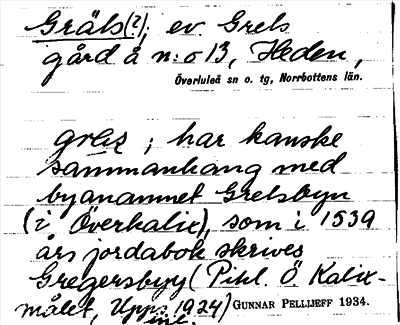 Gräls(?), ev. Grels
gård å n:o 13, Heden,
Överluleå sn o. tg, Norrbottens län.
; har kanske
sammanhang med
bynamnet Grelsbyn
(i Överkalix), som i 1539
års jordabok skrives
Gregersbyy (Pihl. Ö. Kalix-
målet, Upps. 1924) GUNNAR PELLIJEFF 1934.